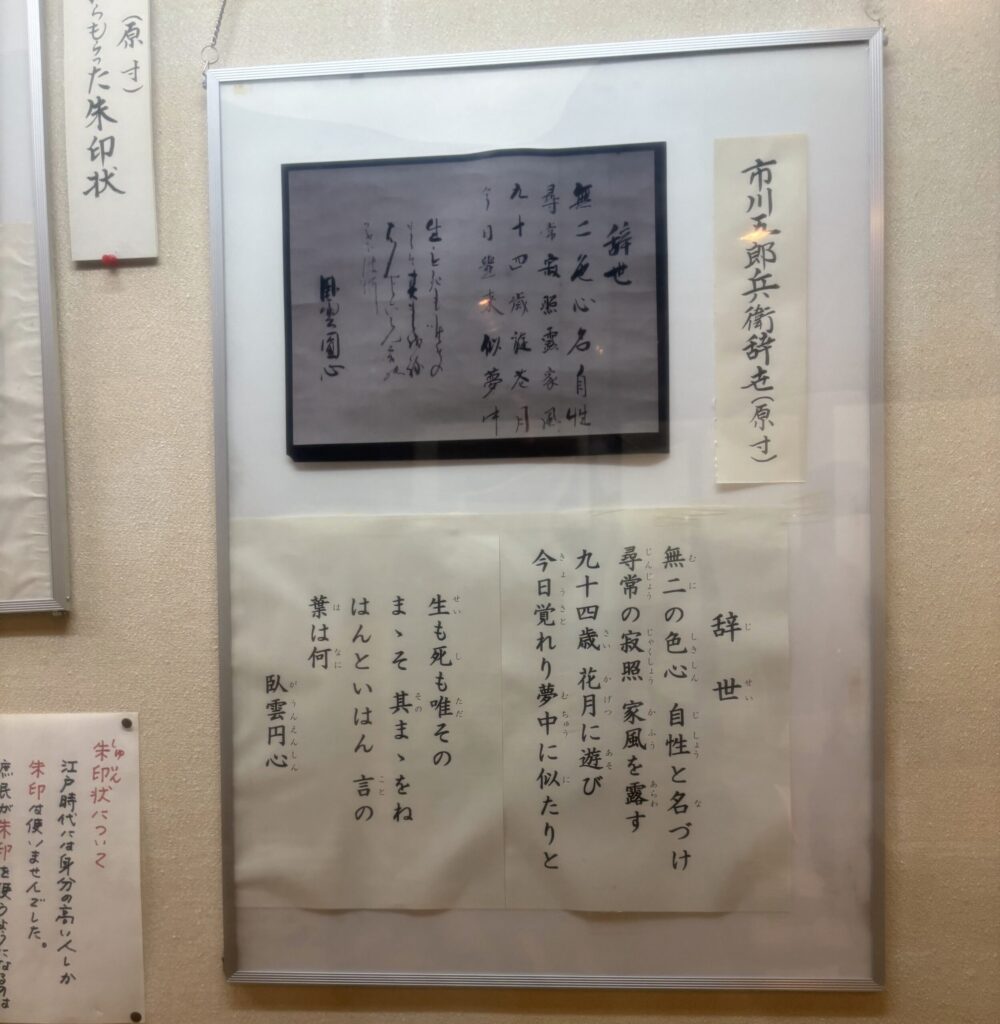 市川五郎兵衛辞世(原寸)
辞世
無二色心名自性
尋常寂照露家風
九十四歳遊花月
今日覚来似夢中
臥雲圓心
辞世
無二の色心 自性と名づけ
尋常の寂照 家風を露す
九十四歳 花月に遊び
今日覚れり夢中に似たりと
生も死も唯その
まゝそ 其まゝをね
はんといはん 言の
葉は何
臥雲円心
(原寸)
らもらった朱印状
朱印状について
江戸時代には身分の高い人しか
朱印は使いませんでした。
庶民が朱印を使うようになるのは